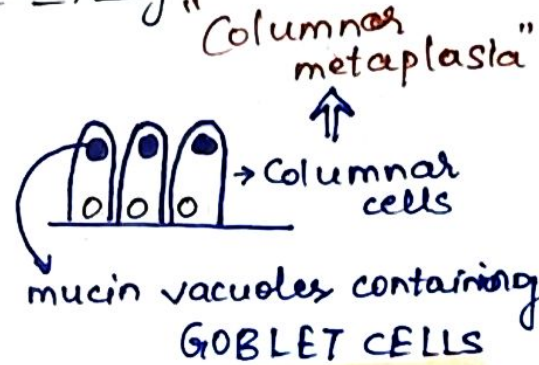 "Columnar
metaplasia"
→ Columnar
cells
mucin vacuoles containing
GOBLET CELLS